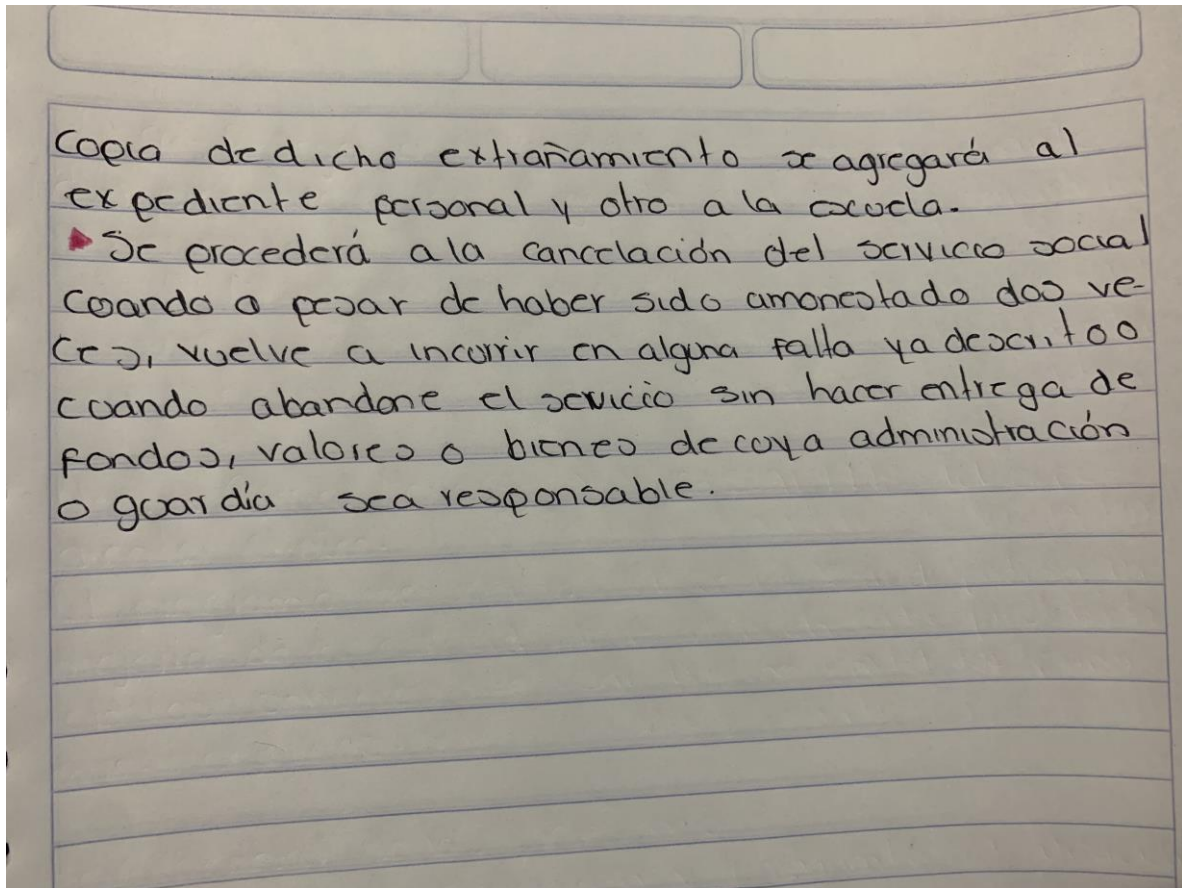 Copia de dicho extrañamiento se agregará al
expediente personal y otro a la escuela.
Se procederá a la cancelación del servicio social
Cuando a pesar de haber sido amonestado dos ve-
ces, vuelve a incurrir en alguna falta ya descrit o o
cuando abandone el servicio sin hacer entrega de
fondos, valores o bienes de cuya administración
o guardia sea responsable.